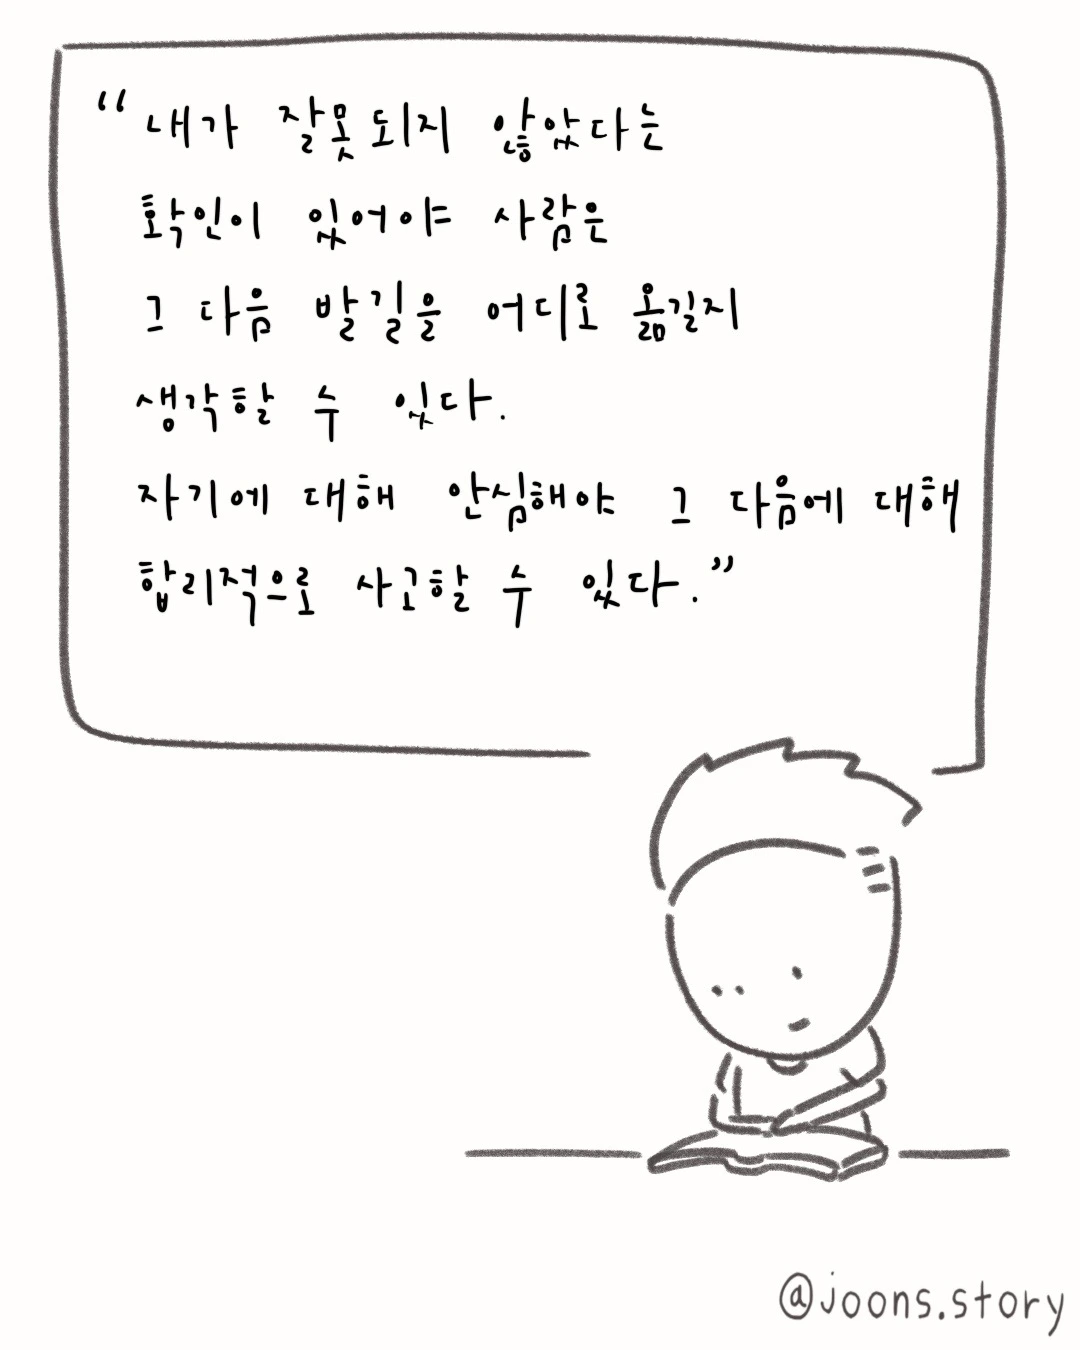 “내가 잘못되지 않았다는
확인이 있어야 사람은
그 다음 발길을 어디로 옮길지
생각할 수 있다.
자기에 대해 안심해야 그 다음에 대해
합리적으로 사고할 수 있다.”
@joons.story